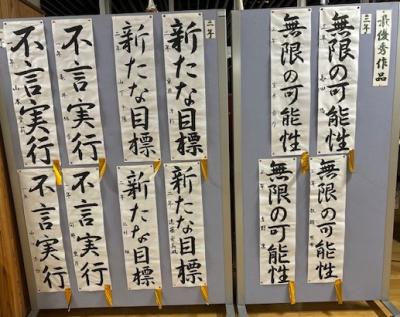 最優秀作品
三年
無限の可能性
無限の可能性
無限の可能性
無限の可能性
二年
新たな目標
新たな目標
不言実行
不言実行
新たな目標
新たな目標
不言実行
不言実行